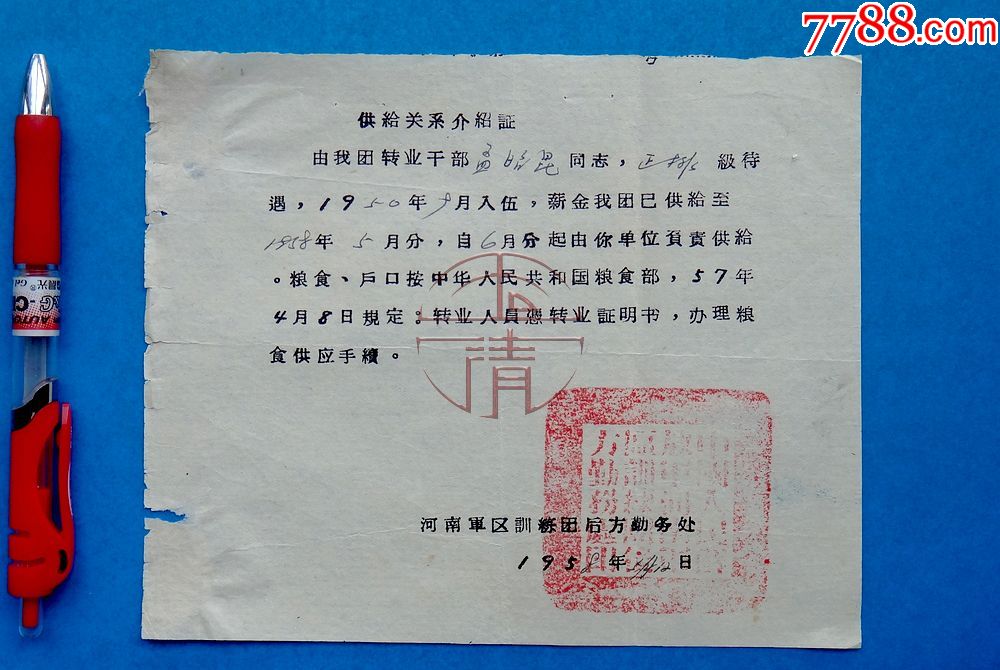 7788.com
供給关系介紹証
由我团转业干部孟昭昆同志，正排級待
遇，1950年9月入伍，薪金我团已供給至
1958年5月分，自6月分起由你单位負責供給
。粮食、戶口按中华人民共和国粮食部，57年
4月8日規定：转业人員憑转业証明书，办理粮
食供应手續。
河南軍区訓練团后方勤务处
1958年5月12日
AUTO